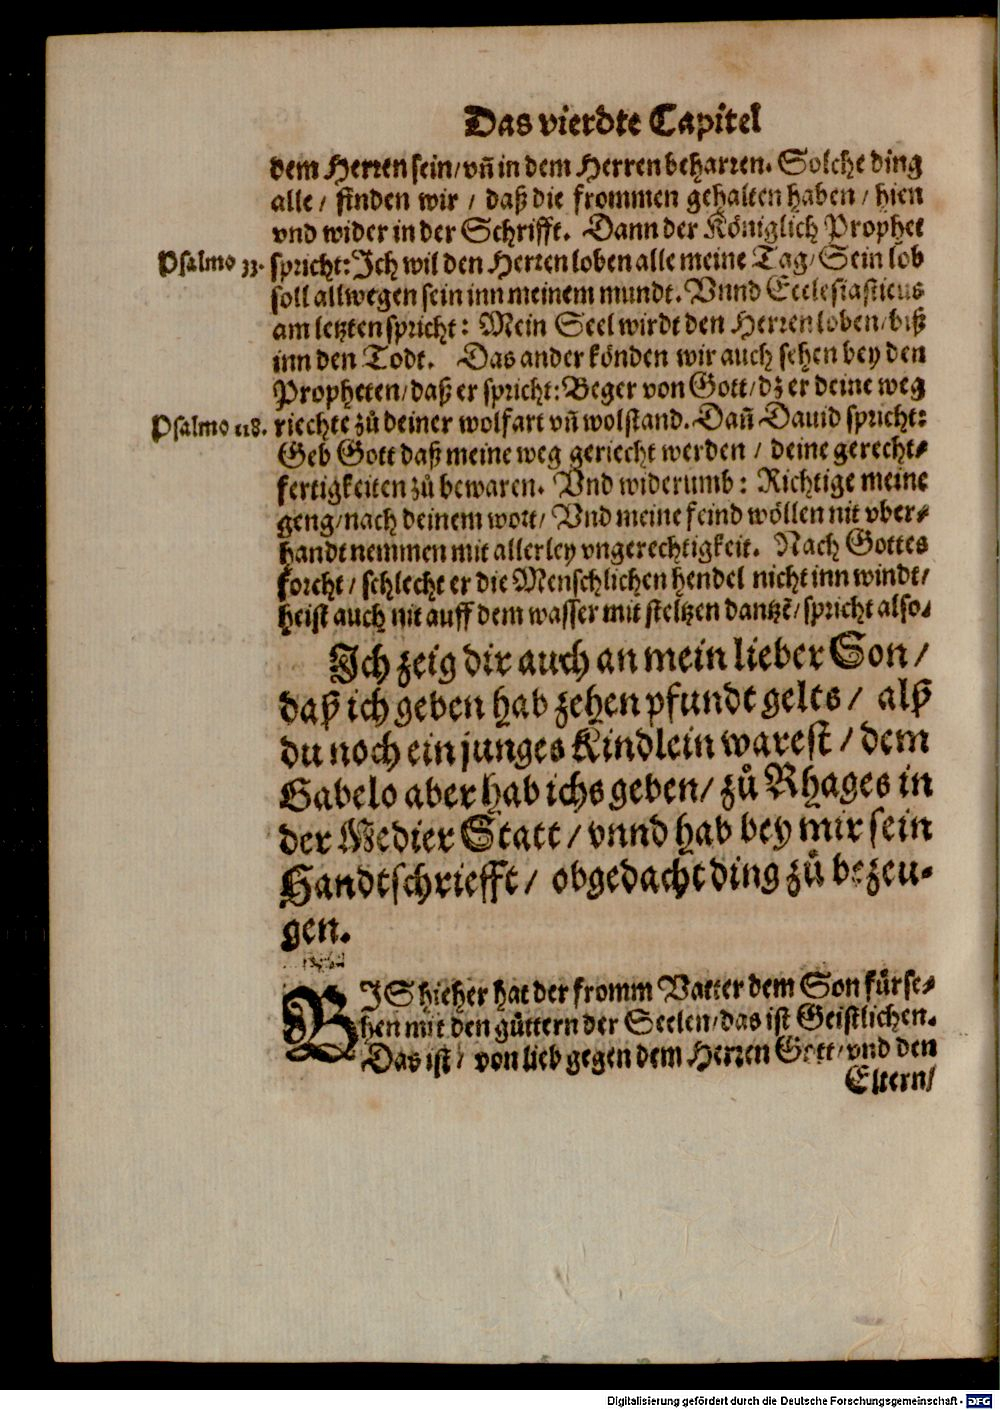 Das vierdte Capitel
dem Herren sein/ vñ in dem Herren beharren. Solche ding
alle / finden wir / daß die frommen gehalten haben / hien
vnd wider in der Schrifft. Dann der Königlich Prophet
Psalmo 33. spricht: Ich wil den Herren loben alle meine Tag/ Sein lob
soll allwegen sein inn meinem mundt. Vnnd Ecclesiasticus
am letzten spricht: Mein Seel wirdt den Herren loben/ biß
inn den Todt. Das ander könden wir auch sehen bey den
Propheten/ daß er spricht: Beger von Gott/ dz er deine weg
Psalmo 118. riechte zů deiner wolfart vñ wolstand. Dañ Dauid spricht:
Geb Gott daß meine weg geriecht werden / deine gerecht-
fertigkeiten zů bewaren. Vnd widerumb: Richtige meine
geng/ nach deinem wort/ Vnd meine feind wöllen nit vber-
handt nemmen mit allerley vngerechtigkeit. Nach Gottes
forcht/ schlecht er die Menschlichen hendel nicht inn windt/
heist auch nit auff dem wasser mit steltzen dantzẽ/ spricht also.
Ich zeig dir auch an mein lieber Son/
daß ich geben hab zehen pfundt gelts/ alß
du noch ein junges Kindlein warest / dem
Gabelo aber hab ichs geben/ zů Rhages in
der Medier Statt/ vnnd hab bey mir sein
Handtschriefft/ obgedacht ding zů bezeu-
gen.
BIS hieher hat der fromm Vatter dem Son fürse-
hen mit den güttern der Seelen/ das ist Geistlichen.
Das ist/ von lieb gegen dem Herren Gott/ vnd den
Eltern/
Digitalisierung gefördert durch die Deutsche Forschungsgemeinschaft - DFG